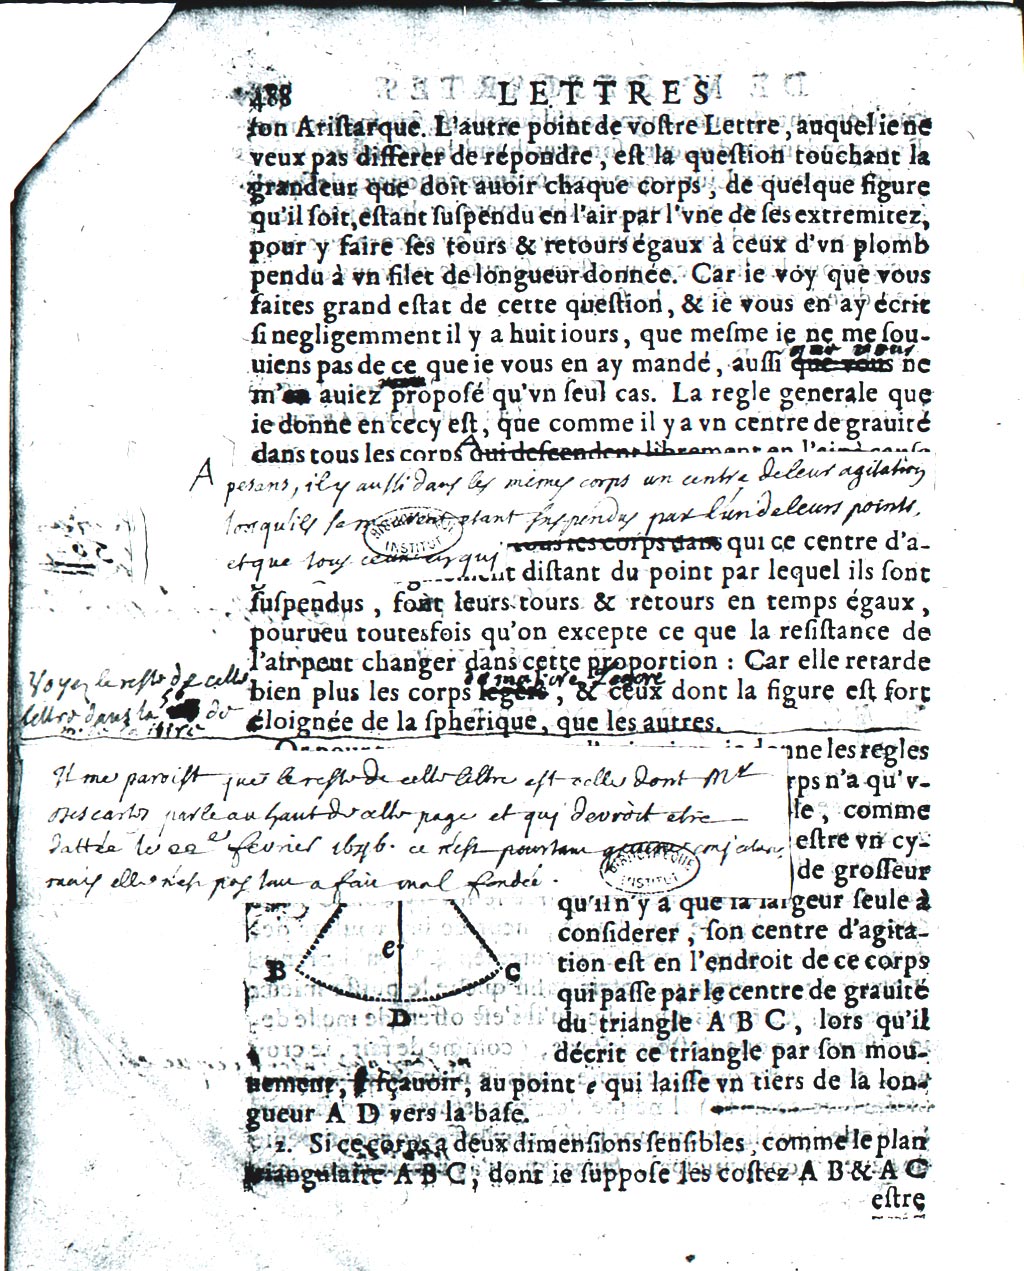 488 LETTRES
ton Aristarque. L'autre point de vostre Lettre, auquel ie ne
veux pas differer de répondre, est la question touchant la
grandeur que doit auoir chaque corps, de quelque figure
qu'il soit, estant suspendu en l'air par l'vne de ses extremitez,
pour y faire ses tours & retours égaux à ceux d'vn plomb
pendu à vn filet de longueur donnée. Car ie voy que vous
faites grand estat de cette question, & ie vous en ay écrit
si negligemment il y a huit iours, que mesme ie ne me sou-
que vous
uiens pas de ce que ie vous en ay mandé, aussi que vous ne
m'en auiez proposé qu'vn seul cas. La regle generale que
ie donne en cecy est, que comme il y a vn centre de grauité
dans tous les corps qui descendent librement en l'air
A pesans, il y aussi dans les memes corps un centre de leur agitation
lorsqu'ils se meuvent etant suspendus par l'un de leurs points,
et que tous ceux en qui tous les corps dans qui ce centre d'a-
distant du point par lequel ils sont
suspendus, font leurs tours & retours en temps égaux,
pourueu toutesfois qu'on excepte ce que la resistance de
l'air peut changer dans cette proportion : Car elle retarde
de matiere legere
bien plus les corps legers, & ceux dont la figure est fort
éloignée de la spherique, que les autres.
Voyez le reste de cette
lettre dans la 56 de
donne les regles
corps n'a qu'v-
le, comme
estre vn cy-
de grosseur
Il me paroist que le reste de cette lettre est celle dont Mr
descartes parle au haut de cette page et qui devroit etre
dattée le 22e fevrier 1646. ce n'est pourtant conjecture,
mais elle n'est pas tout a fait mal fondée.
qu'il n'y a que la largeur seule à
considerer, son centre d'agita-
tion est en l'endroit de ce corps
qui passe par le centre de grauité
du triangle A B C, lors qu'il
décrit ce triangle par son mou-
e
B C
D
uement, sçauoir, au point e qui laisse vn tiers de la lon-
gueur A D vers la base.
2. Si ce corps a deux dimensions sensibles, comme le plan
triangulaire A B C, dont ie suppose les costez A B & A C
estre
BIBLIOTHEQUE
INSTITUT
BIBLIOTHEQUE
INSTITUT